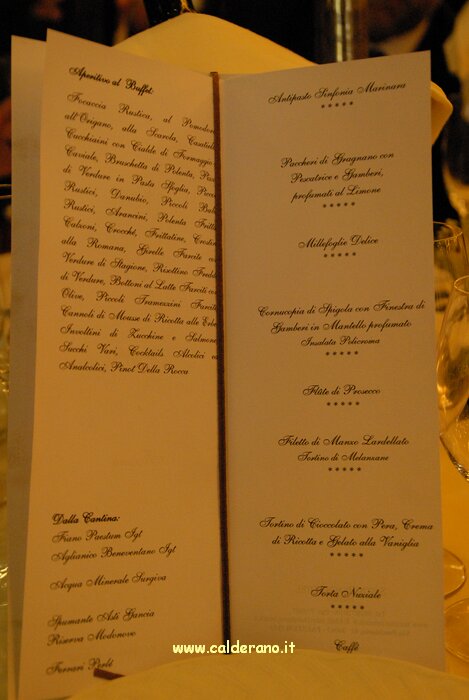 Aperitivo al Buffet:
Focaccia Rustica, al Pomodoro
all'Origano, alla Scarola, Casatiell
Cucchiaini con Cialde di Formaggio
Caviale, Bruschetta di Polenta, Pizz
di Verdure in Pasta Sfoglia, Picco
Rustici, Danubio, Piccoli Bab
Rustici, Arancini, Polenta Fritta
Calzoni, Crocché, Frittatine, Croston
alla Romana, Girelle Farcite co
Verdure di Stagione, Risottino Fredd
di Verdure, Bottoni al Latte Farciti con
Olive, Piccoli Tramezzini Farciti
Cannoli di Mousse di Ricotta alle Erbe
Involtini di Zucchine e Salmone
Succhi Vari, Cocktails Alcolici e
Analcolici, Pinot Della Rocca
Dalla Cantina:
Fiano Paestum Igt
Aglianico Beneventano Igt
Acqua Minerale Surgiva
Spumante Asti Gancia
Riserva Modonovo
Ferrari Perlé
Antipasto Sinfonia Marinara
*****
Paccheri di Gragnano con
Pescatrice e Gamberi,
profumati al Limone
*****
Millefoglie Delice
*****
Cornucopia di Spigola con Finestra di
Gamberi in Mantello profumato
Insalata Policroma
*****
Flûte di Prosecco
*****
Filetto di Manzo Lardellato
Tortino di Melanzane
*****
Tortino di Cioccolato con Pera, Crema
di Ricotta e Gelato alla Vaniglia
*****
Torta Nuziale
*****
Caffè
www.calderano.it